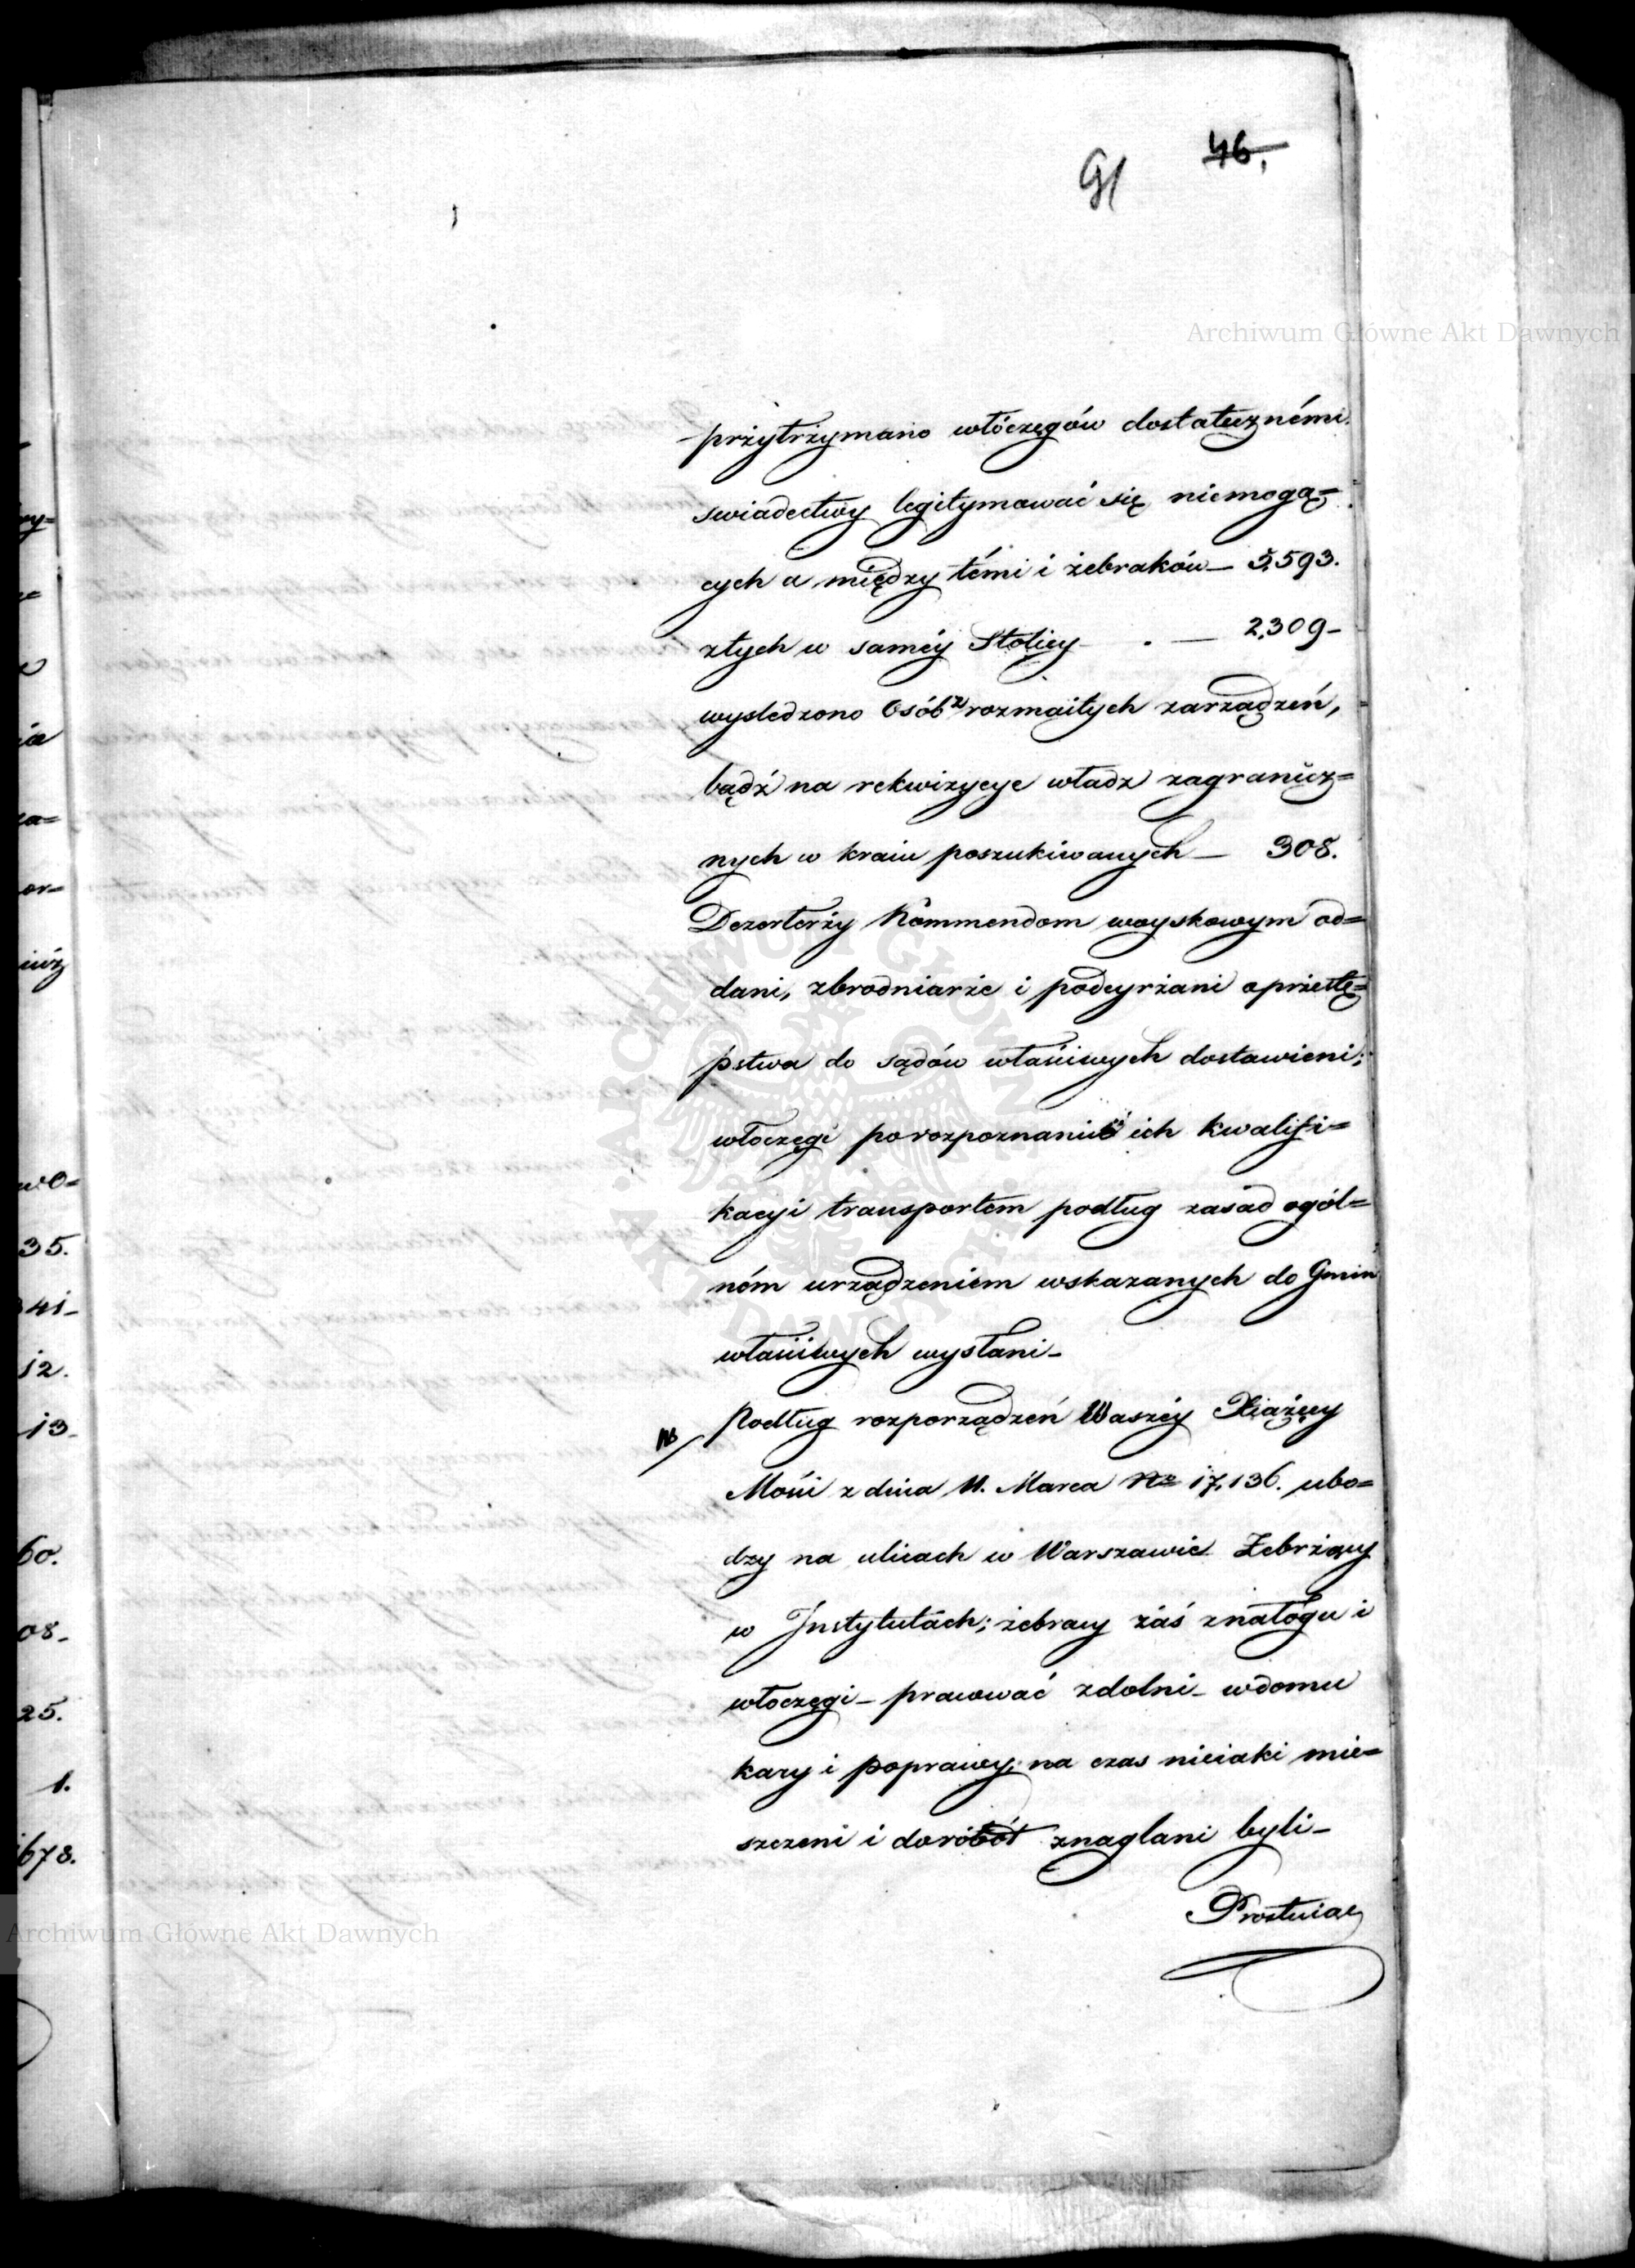 91 46.
Archiwum Główne Akt Dawnych
przytrzymano włóczęgów dostatecznémi
swiadectwy legitymować się niemogą=
cych a między témi i żebraków — 5,593.
ztych w saméy Stolicy — . — 2,309 —
wysledzono Osób z rozmaitych zarządzeń,
bądź na rekwizycye władz zagranicz=
nych w kraiu poszukiwanych — 308.
Dezerterzy Kommendom woyskowym od=
dani, zbrodniarze i podeyrzani o przestę=
pstwa do sądów właściwych dostawieni;
włoczęgi po rozpoznaniu ich kwalifi=
kacyi transportem podług zasad ogól=
ném urządzeniem wskazanych do Gmin
właściwych wysłani —
Podług rozporządzeń Waszéy Xiążęcy
Mości z dnia 11. Marca No 17,136. ubo=
dzy na ulicach w Warszawie Żebrzący
w Instytutach; żebracy zaś z nałogu i
włoczęgi — pracować zdolni — w domu
kary i poprawy, na czas nieiaki mie=
szczeni i do robót znaglani byli —
wy=
ia
za=
or=
wo=
35.
41 —
12.
13 —
60.
08 —
25.
1.
678.
Archiwum Główne Akt Dawnych
ARCHIWUM GŁÓWNE
AKT DAWNYCH